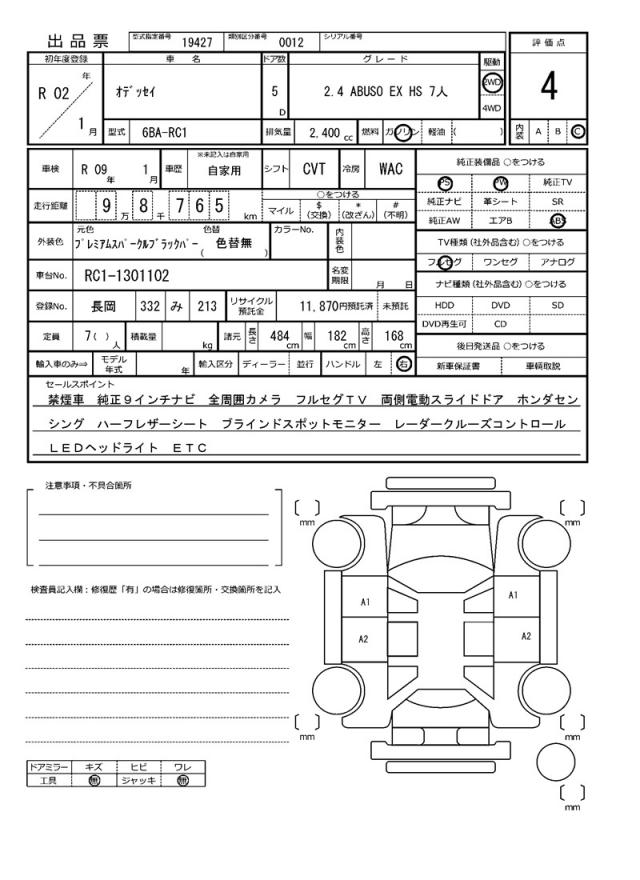 出品票 型式指定番号 19427 類別区分番号 0012 シリアル番号
評価点
4
内装 A B C
初年度登録 車名 ドア数 グレード 駆動
R 02 年 1 月 オデッセイ 5 D 2.4 ABUSO EX HS 7人 2WD
4WD
型式 6BA-RC1 排気量 2,400 cc 燃料 ガソリン 軽油 ( )
車検 R 09 年 1 月 車歴 ※未記入は自家用 自家用 シフト CVT 冷房 WAC
走行距離 9 万 8 千 7 6 5 km
○をつける
マイル $ (交換) * (改ざん) # (不明)
外装色 元色 プレミアムスパークルブラックパー 色替 ( 色替無 ) カラーNo. 内装色
車台No. RC1-1301102 名変期限 月 日
登録No. 長岡 332 み 213 リサイクル預託金 11,870円預託済 未預託
定員 7( ) 人 積載量 kg 諸元 長さ 484 cm 幅 182 cm 高さ 168 cm
輸入車のみ⇒ モデル年式 年 輸入区分 ディーラー 並行 ハンドル 左 右
純正装備品 ○をつける
PS PW 純正TV
純正ナビ 革シート SR
純正AW エアB ABS
TV種類 (社外品含む) ○をつける
フルセグ ワンセグ アナログ
ナビ種類 (社外品含む) ○をつける
HDD DVD SD
DVD再生可 CD
後日発送品 ○をつける
新車保証書 車輌取説
セールスポイント
禁煙車 純正9インチナビ 全周囲カメラ フルセグTV 両側電動スライドドア ホンダセン
シング ハーフレザーシート ブラインドスポットモニター レーダークルーズコントロール
LEDヘッドライト ETC
注意事項・不具合箇所
検査員記入欄：修復歴「有」の場合は修復箇所・交換箇所を記入
ドアミラー キズ ヒビ ワレ
工具 無 ジャッキ 無
[ ] mm [ ] mm
A1 A1
A2 A2
[ ] mm [ ] mm
[ ] mm